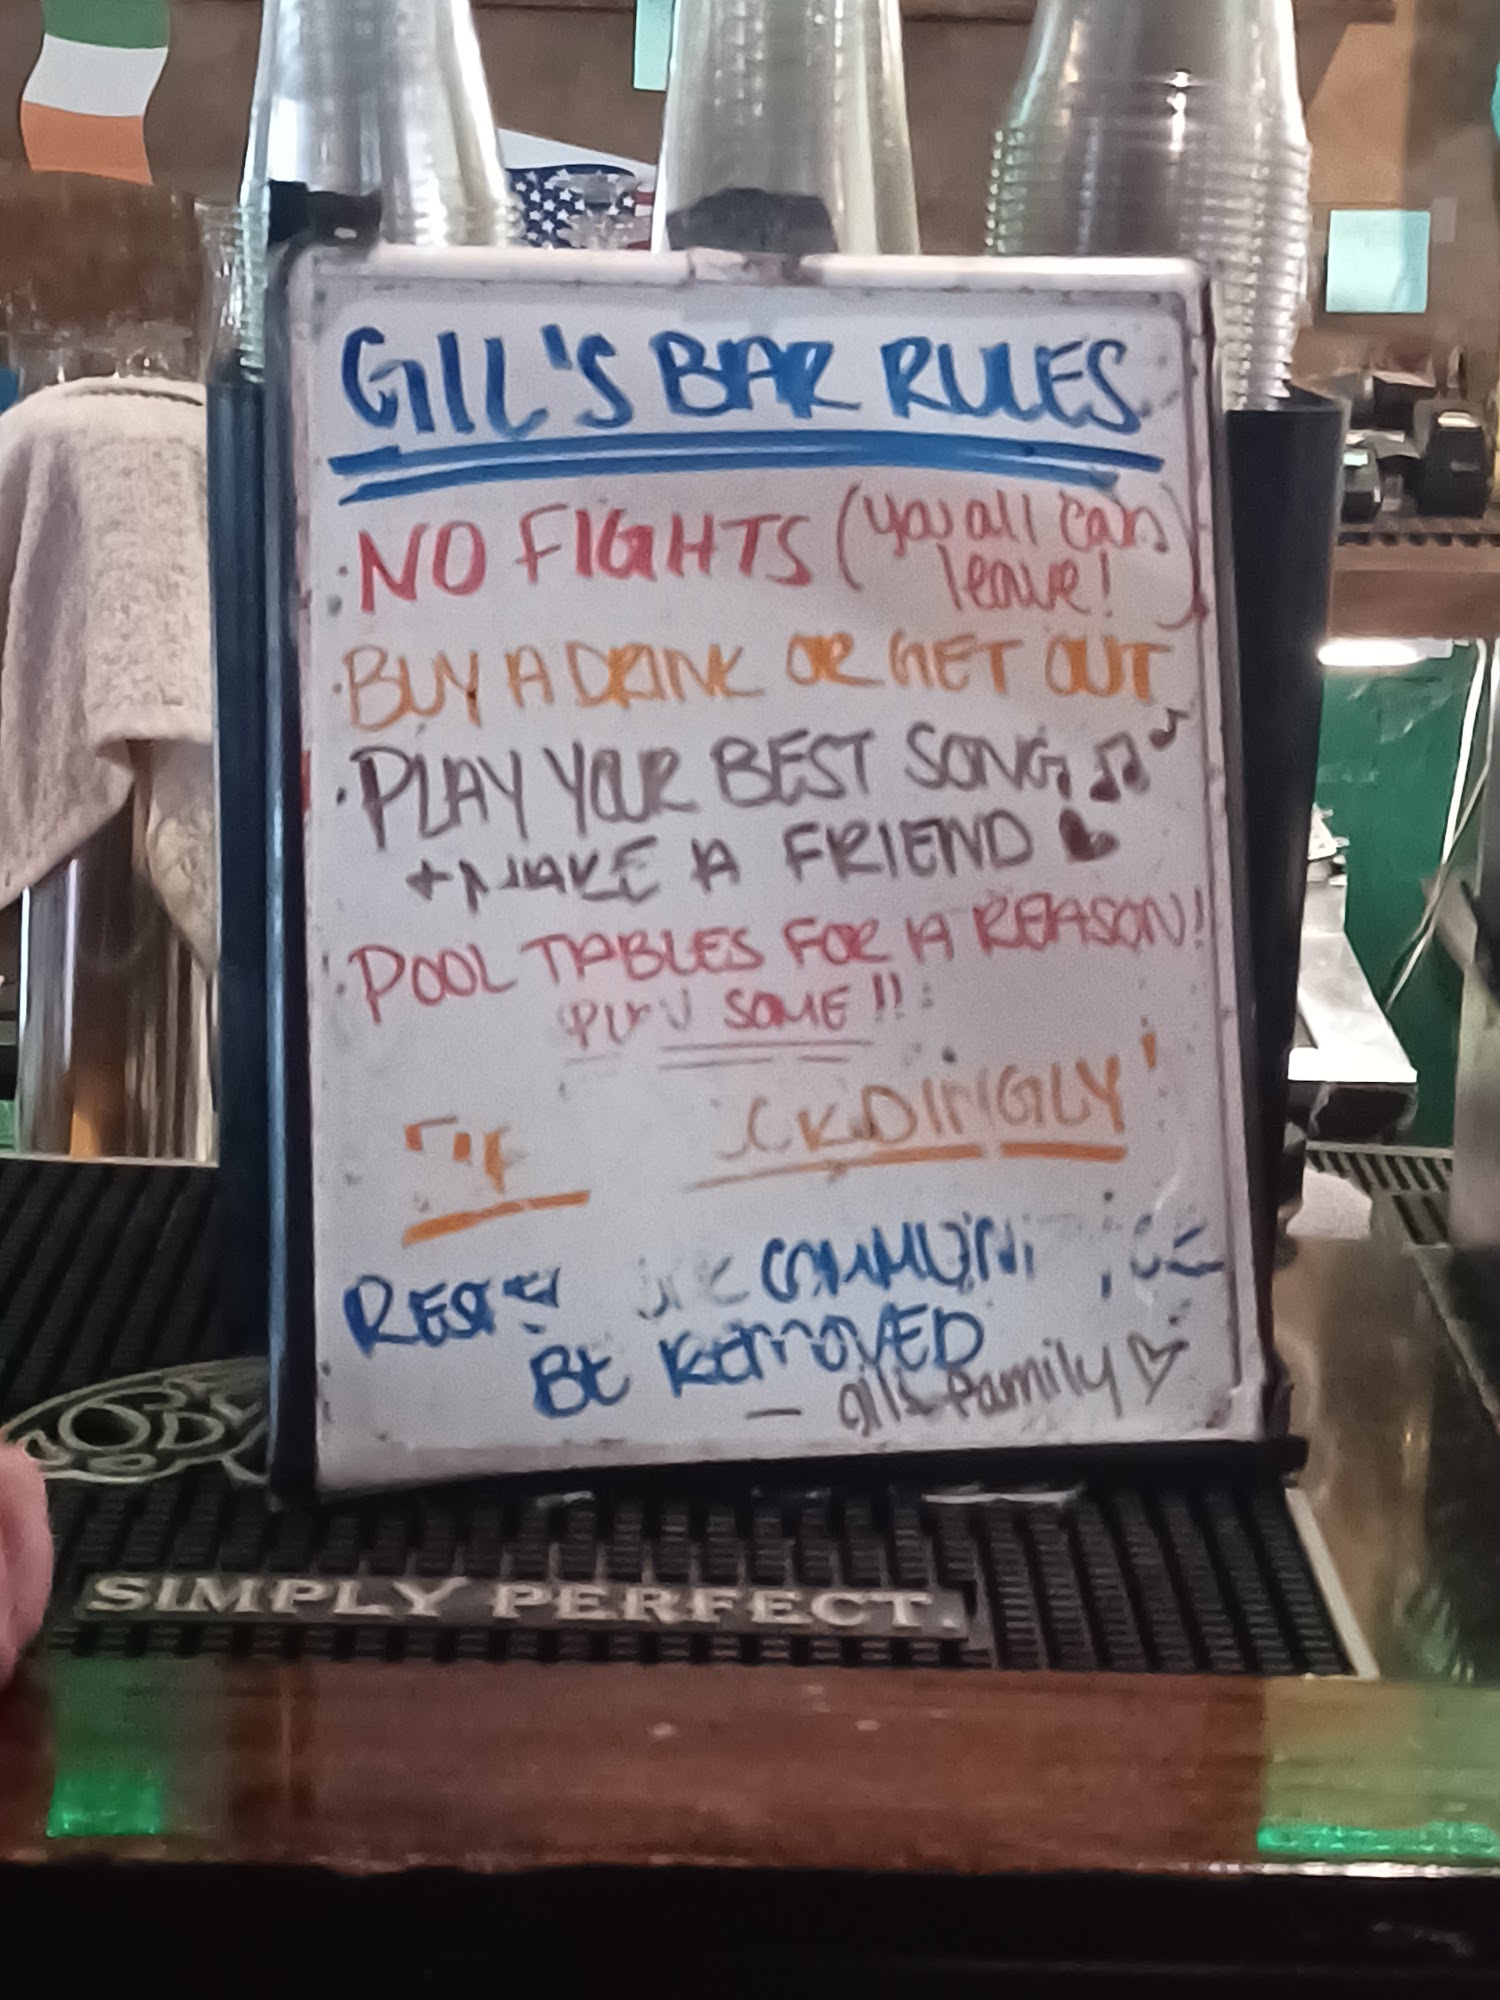 GIL'S BAR RULES
· NO FIGHTS (you all can
leave!)
· BUY A DRINK OR GET OUT
· PLAY YOUR BEST SONG
+ MAKE A FRIEND
· POOL TABLES FOR A REASON!
PLAY SOME!!
BE REMOVED
— gils family
SIMPLY PERFECT.